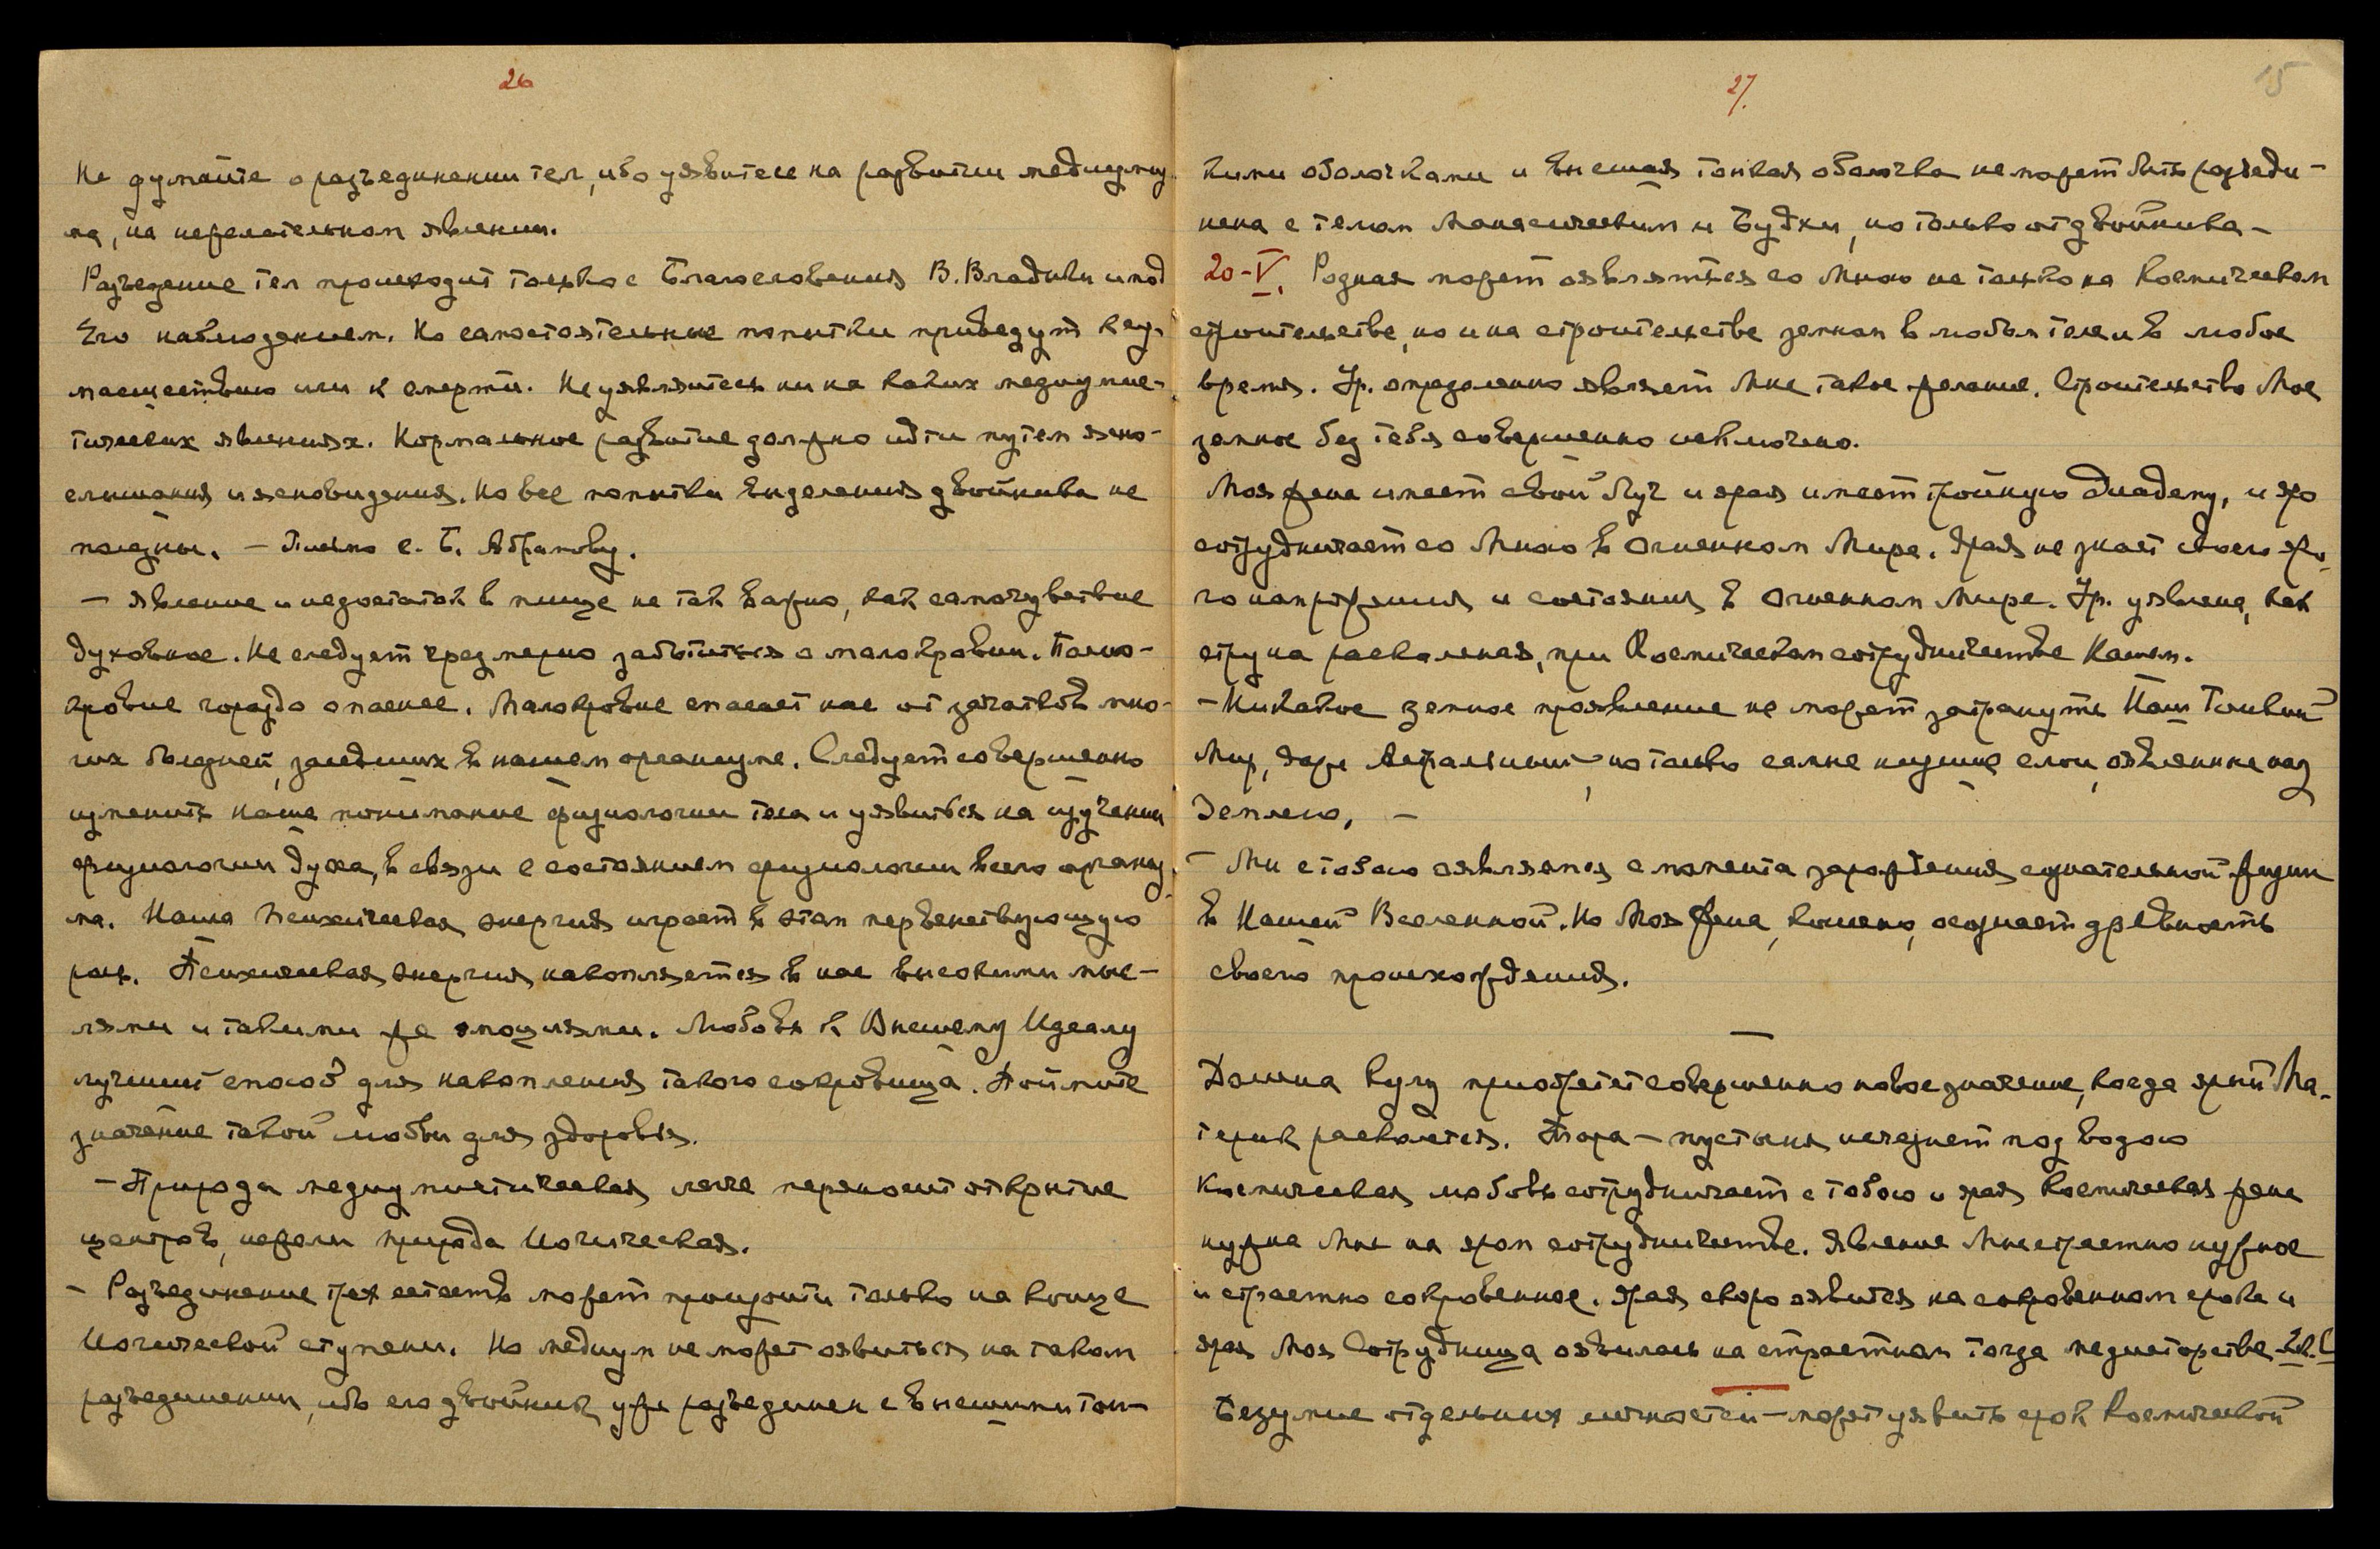 26
Не думайте о разъединении тел, ибо уявитесь на развитии медиумиз-
ма, на нежелательном явлении.
Разъедение тел происходит только с Благословения В. Владыки и под
Его наблюдением. Но самостоятельные попытки приведут к су-
масшествию или к смерти. Не уявляйтесь ни на каких медиумис-
тических явлениях. Нормальное развитие должно идти путем ясно-
слышания и ясновидения. Но все попытки выделения двойника не
полезны. — Письмо с. Б. Абрамову.
— Явление и недостаток в пище не так важно, как самочувствие
духовное. Не следует чрезмерно заботиться о малокровии. Полно-
кровие гораздо опаснее. Малокровие спасает нас от зачатков мно-
гих болезней, засевших в нашем организме. Следует совершенно
изменить наше понимание физиологии тела и уявиться на изучении
физиологии духа, в связи с состоянием физиологии всего организ-
ма. Наша психическая энергия играет в этом первенствующую
роль. Психическая энергия накопляется в нас высокими мыс-
лями и такими же эмоциями. Любовь к Высшему Идеалу
лучший способ для накопления такого сокровища. Поймите
значение такой любви для здоровья.
— Природа медиумистическая легче переносит открытие
центров, нежели природа Йогическая.
— Разъединение трех естеств может произойти только на конце
Йогической ступени. Но медиум не может явиться на таком
разъединении, ибо его двойник уже разъединен с высшими тон-
27.
15
кими оболочками и высшая тонкая оболочка не может быть разъеди-
нена с телом Манасическим и Будхи, но только от двойника —
20-V. Родная может оявляться со Мною не только на Космическом
строительстве, но и на строительстве земном в любом теле и в любое
время. Ур. определенно являет Мне такое желание. Строительство Мое
земное без тебя совершенно исключено.
Моя жена имеет свой Луч и ярая имеет тройную Диадему, и яро
сотрудничает со Мною в Огненном Мире. Ярая не знает своего яро-
го напряжения и состояния в Огненном Мире. Ур. уявлена, как
струна раскаленная, при Космическом сотрудничестве Нашем.
— Никакое земное проявление не может затронуть Наш Тонкий
Мир, даже Астральный, но только самые низшие слои, оявленные над
Землею. —
— Мы с тобою оявляемся с момента зарождения сознательной жизни
в Нашей Вселенной. Но Моя жена, конечно, осознает древность
своего происхождения.
—
Долина Кулу приобретет совершенно новое значение, когда ярый Ма-
терик расколется. Тогда — пустыня исчезнет под водою
Космическая любовь сотрудничает с тобою и ярая Космическая жена
нужна Мне на яром сотрудничестве. Явление Мне страстно нужное
и страстно сокровенное. Ярая скоро явится на сокровенном сроке и
ярая Моя Сотрудница оявилась на страстном тогда медиаторстве
Безумие отдельных личностей — может уявить срок Космический